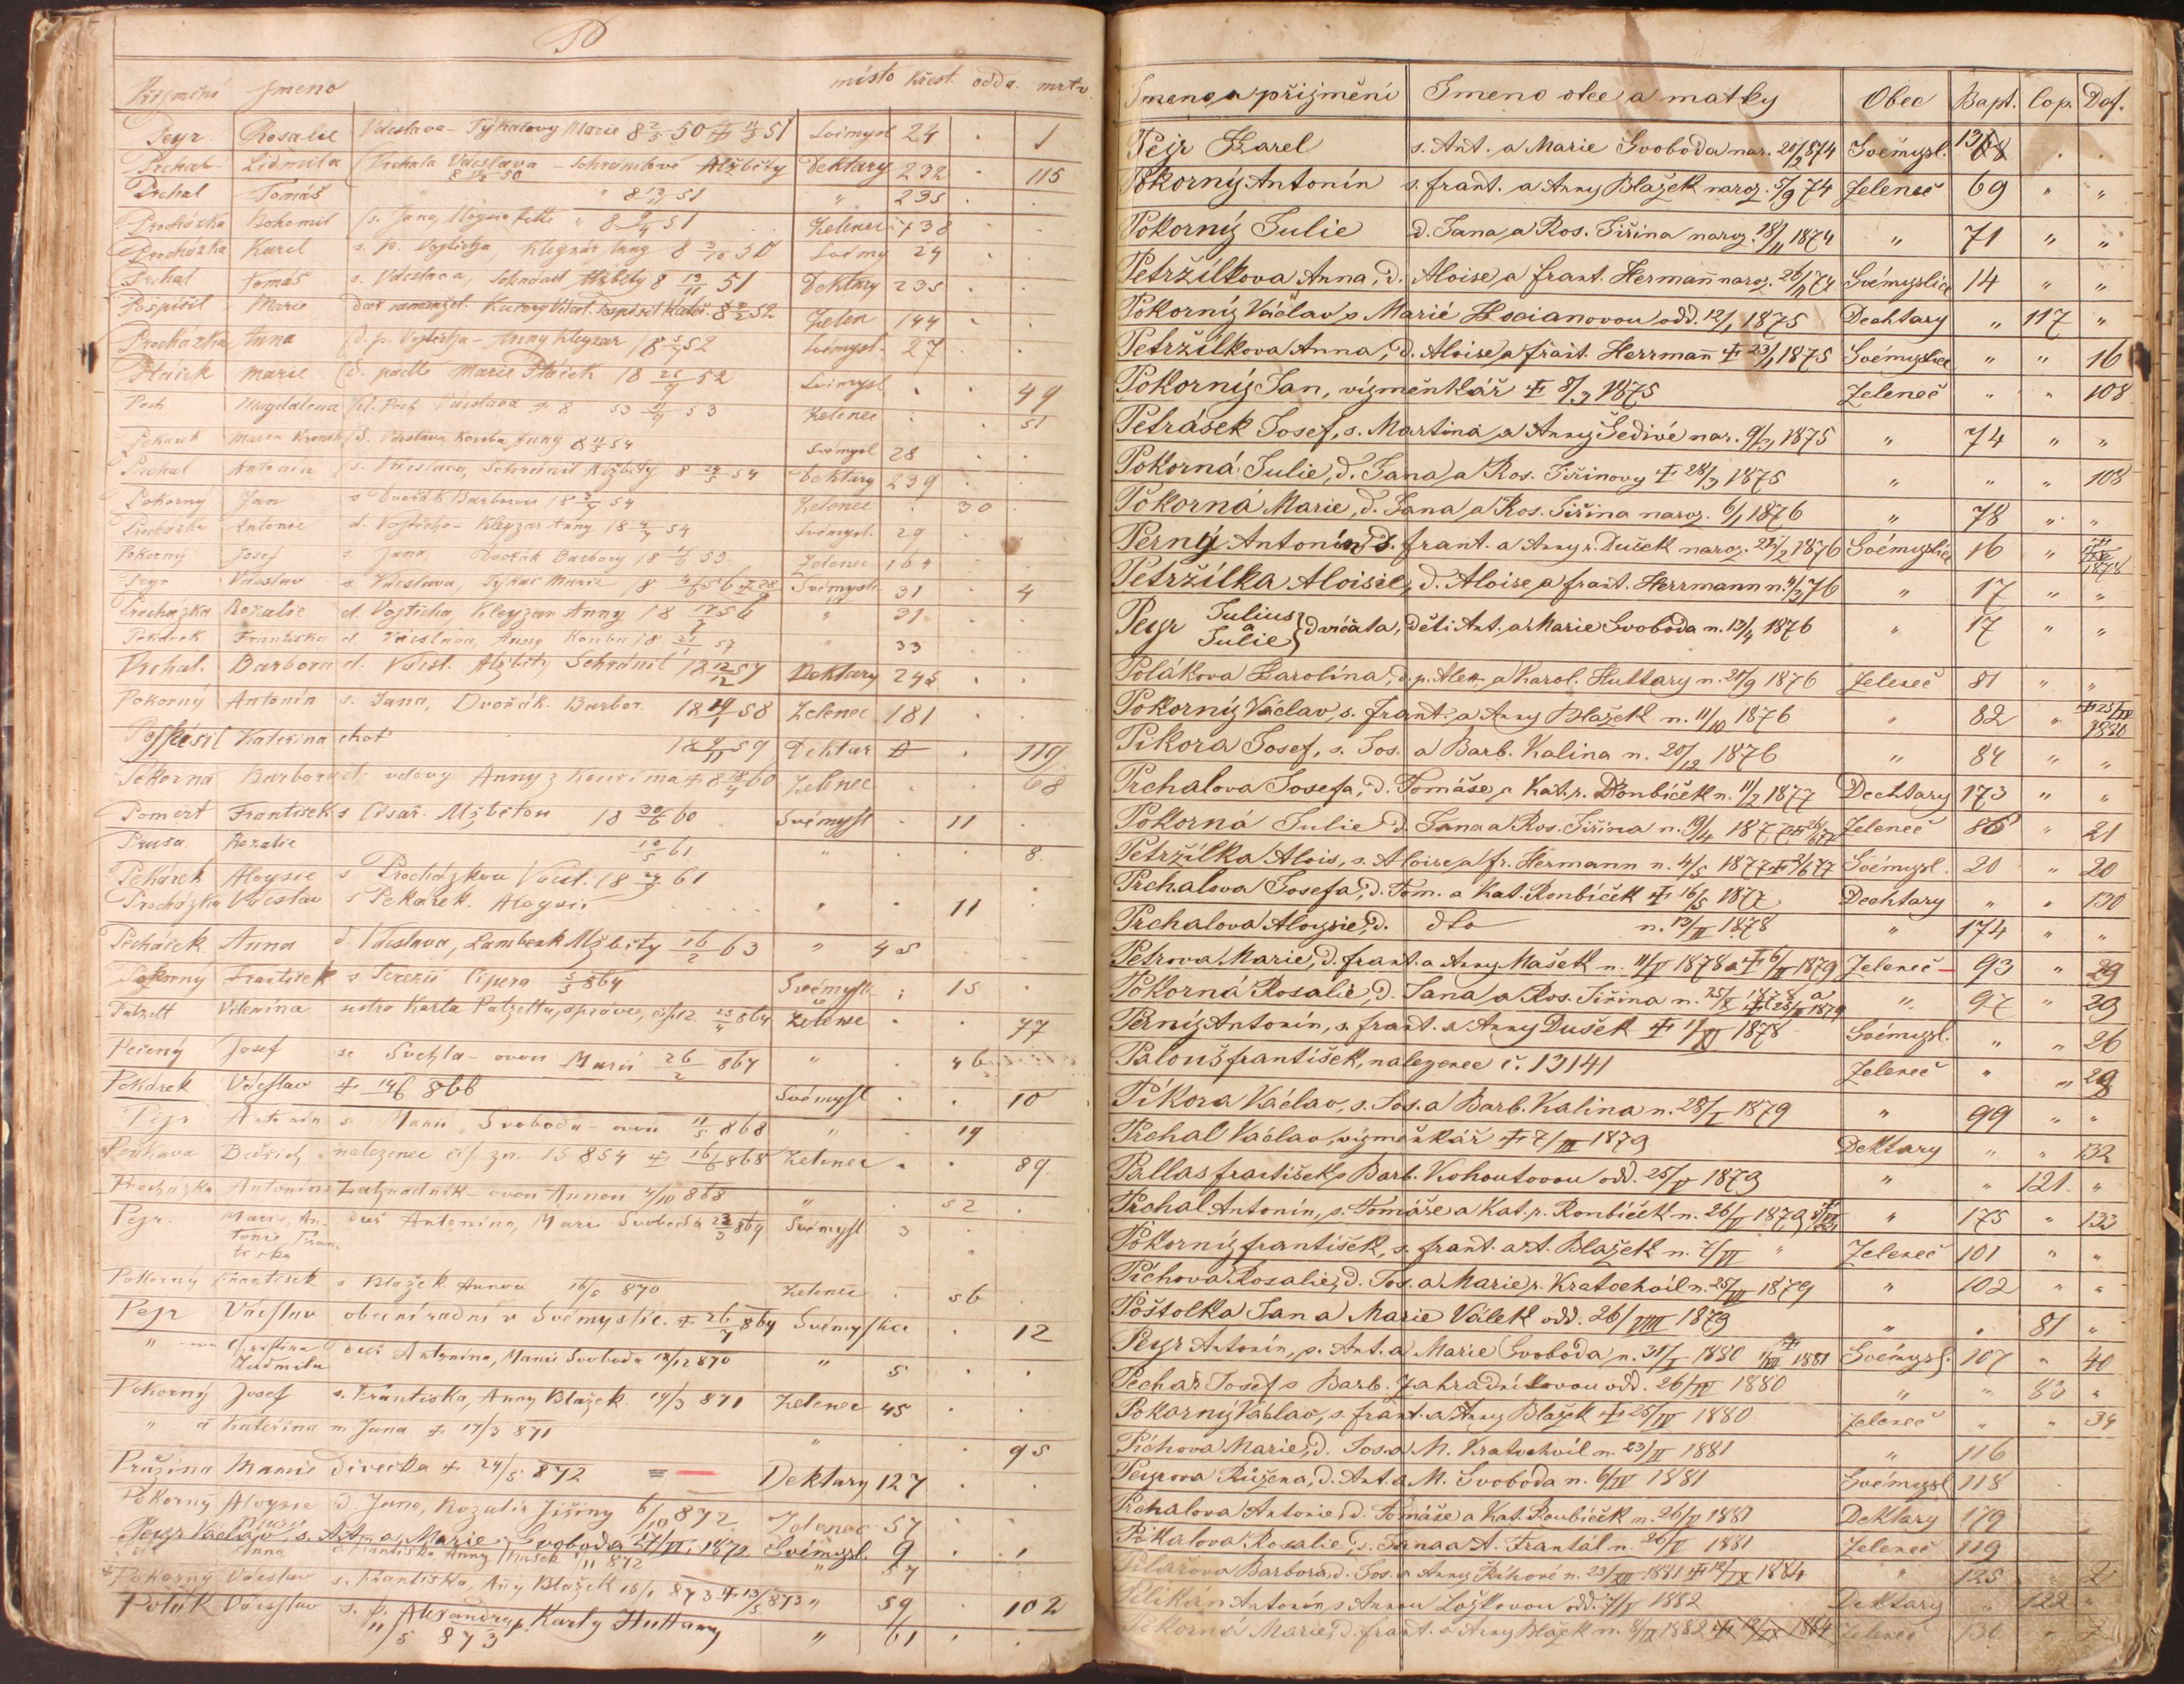 P
Přijmění Jmeno místo křest. odda. mrtv.
Peyr Rosalie Václava - Tykalovy Marie 8 2/5 50 ╪ 11/5 51 Svémysl 24 . 1
Prchal Lidmila Prchala Václava - Schramlové Alžběty Dektary 232 . 115
Prchal Tomáš " " 8 13/11 51 " 235 . .
Procházka Bohomil s. Jana, Aloysie 8 9/4 51 Zelenec 138 . .
Procházka Karel s. p. Vojtěcha, Kleyzar Anny 8 3/10 50 Svémy 24 . .
Prchal Tomáš s. Václava, Alžběty 8 13/11 51 Dektary 235 . .
Pospíšil Marie Zelen 144 . .
Procházka Anna d. p. Vojtěcha - Anny Kleyzar 18 5/7 52 Svémysl. 27 . .
Ptáček Marie d. Marie Ptáček 18 25/9 52 Svémysl . . 49
Pech Magdalena Pech Václava ╪ 8 53 Zelenec . . 51
Pekárek d. Václava Kouba Anny 8 11/5 54 Svémysl 28 . .
Prchal Antonín s. Václava, Schrámil Alžběty 8 24/5 54 Dektary 239 . .
Pokorny Jan s Dvořák Barborou 18 54 Zelenec . 30 .
Procházka Antonie d. Vojtěcha - Kleyzar Anny 18 54 Svémysl. 29 . .
Pokorný Josef s. Jana, Dvořák Barbory 18 55 Zelenec 164 . .
Peyr Václav s. Václava, Tykal Marie 18 56 ╪ Svémysli 31 . 4
Procházka Rozalie d. Vojtěcha, Kleyzar Anny 18 56 " 31 . .
Pekárek Františka d. Václava, Anny Kouba 18 21/1 57 " 33 . .
Prchal. Barbora d. Václ. Alžběty Schrámil 18 12/12 57 Dektary 245 . .
Pokorný Antonín s. Jana, Dvořák. Barbor. 18 19/1 58 Zelenec 181 . .
Pospíšil Kateřina choť 18 59 Dektar . 119
Pokorná Barbora d. vdovy Anny z Kouřima ╪ 8 18/4 60 Zelenec . . 68
Pomert František s Císař. Alžbětou 18 30/6 60 Svémysl . 11 .
Prusa Rozalie 10/5 61 " . . 8.
Pekárek Aloysie s Procházkou Václ. 18 61
Procházka Václav s Pekárek. Aloysií " . 11 .
Pecháček Anna d. Václava, Alžběty 16/2 63 " 45
Pokorný František s Terezií Čipera 5/5 864 Svémysl . 15 .
Patzelt Vilemína sestra Karla Patzelta, správce, čp 12. 25/4 864 Zelenec . . 77
Pečený Josef se Svehla - ovou Marií 26/2 867 " . 46
Pekárek Václav ╪ 14/6 866 Svémysl . . 10
Pejr Antonín s Marií Svoboda - ovou 11/5 868 " . 19
Penkava Bedřich nalezenec čís zn. 15854 ╪ 16/6 868 Zelenec . . 89.
Procházka Antonín s Zahradník - ovou Annou 4/10 868 " . 52 .
Pejr. Marie, An- dcer Antonína, Marie Svoboda 23/3 869 Svémysl 3
tonie, Fran-
tiska
Pokorný František s Blažek Annou 16/ 870 Zelenec . 56
Pejr Václav obecní radní v Svémyslic. ╪ 26/7 869 Svémyslice . 12
" Kristina dcer Antonína, Marie Svoboda 12/12 870 " 5 . .
Ludmila
Pokorný Josef s. Františka, Anny Blažek 14/3 871 Zelenec 45 . .
" á Kateřina m. Jana ╪ 17/3 871 " . . 95
Pružina Marie divecka ╪ 24/5 872 = Dektary 127 . .
Pokorný Aloysie d. Jana, Rozalie Jiřiny 6/10 872 Zelenec 57 . .
Peyr Václav s. Ant. a Marie Svoboda 17/VI. 1872. Svémysl. 9 . .
Pokorný Václav s. Františka, Anny Blažek 15/1 873 ╪ 13/5 873 " 59 . 102
Polák Václav s. p. Alexandra, p. Karly Huttary " 61 . .
11/5 873
Jmeno a přijmění Jmeno otce a matky Obec Bapt. Cop. Def.
Pejr Karel s. Ant. a Marie Svoboda nar. 20/2 874 Svémysl. 13 . .
Pokorný Antonín s. frant. a Anny Blažek naroz. 5/9 74 Zeleneč 69 " "
Pokorný Julie d. Jana a Ros. Jiřina naroz. 18/11 1874 " 71 " "
Petržílkova Anna, d. Aloise a frant. Hermann naroz. 26/11 74 Svémyslice 14 " "
Pokorný Václav s Marií Kocianovou odd. 12/1 1875 Dechtary " 117 "
Petržílkova Anna, d. Aloise a frant. Herrmann ╪ 23/1 1875 Svémyslice " " 16
Pokorný Jan, výměnkář ╪ 8/3 1875 Zeleneč " " 108
Petrásek Josef, s. Martina a Anny Šedivé nar. 9/3 1875 " 74 " "
Pokorná Julie, d. Jana a Ros. Jiřinovy ╪ 28/3 1875 " " " 108
Pokorná Marie, d. Jana a Ros. Jiřina naroz. 6/1 1876 " 78 " "
Perný Antonín, s. frant. a Anny r. Dušek naroz. 21/2 1876 Svémyslice 16 " 1878
Petržílka Aloisie, d. Aloise a frant. Herrmann n. 4/3 76 " 17 " "
Peyr Julius a Julie } dvojčata, děti Ant. a Marie Svoboda n. 13/4 1876 " 17 " "
Polákova Karolína, d. p. Alex. a Karol. Huttary n. 21/9 1876 Zeleneč 81 " "
Pokorný Václav, s. frant. a Anny Blažek n. 11/10 1876 " 82 " ╪ 25/IV 1880
Píkora Josef, s. Jos. a Barb. Kalina n. 20/12 1876 " 84 " "
Prchalova Josefa, d. Tomáše a Kat. r. Roubíček n. 11/2 1877 Dechtary 173 " "
Pokorná Julie d. Jana a Ros. Jiřina n. 19/4 1877 ╪ 26/6 77 Zeleneč 86 " 21
Petržílka Alois, s. Aloise a fr. Hermann n. 4/5 1877 ╪ 2/6 77 Svémysl. 20 " 20
Prchalova Josefa, d. Tom. a Kat. Roubíček ╪ 16/5 1877 Dechtary " " 130
Prchalova Aloysie, d. dto n. 13/II 1878 " 174 " "
Petrova Marie, d. frant. a Anny Mašek n. 11/V 1878 a ╪ 6/II 1879 Zeleneč 93 " 29
Pokorná Rosalie, d. Jana a Ros. Jiřina n. 25/X 1878 a ╪ 25/II 1879 " 97 " 29
Perný Antonín, s. frant. a Anny Dušek ╪ 1/XI 1878 Svémysl. " " 26
Palouš františek, nalezenec č. 13141 Zeleneč " " 28
Píkora Václav, s. Jos. a Barb. Kalina n. 28/I 1879 " 99 " "
Prchal Václav, výměnkář ╪ 7/III 1879 Dektary " " 132
Pallas františek s Barb. Kohoutovou odd. 25/V 1879 " " 121. "
Prchal Antonín, s. Tomáše a Kat. r. Roubíček n. 26/V 1879 " 175 " 133
Pokorný františek, s. frant. a A. Blažek n. 7/VI " Zeleneč 101 " "
Píchova Rosalie, d. Jos. a Marie r. Kratochvíl n. 25/VII 1879 " 102 " "
Poštolka Jan a Marie Válek odd. 26/VIII 1879 " " 81 "
Peyr Antonín, s. Ant. a Marie Svoboda n. 31/I 1880 ╪ 1/XII 1881 Svémysl. 107 " 40
Pechar Josef s Barb. Zahradníkovou odd. 26/IV 1880 " " 83 "
Pokorný Václav, s. frant. a Anny Blažek ╪ 25/IV 1880 Zeleneč " " 34
Píchova Marie, d. Jos. a M. Kratochvíl n. 23/II 1881 " 116
Peyrova Růžena, d. Ant. a M. Svoboda n. 6/IV 1881 Svémysl 118
Prchalova Antonie, d. Tomáše a Kat. Roubíček n. 26/V 1881 Dektary 179
Pokalova Rosalie, d. Jana a A. Frantál n. 26/V 1881 Zeleneč 119
Pilařova Barbora, d. Jos. a Anny Říhové n. 23/XII 1881 ╪ 12/IX 1884 " 125 " 2
Pelikán Antonín s Annou Ložkovou odd. 7/I 1882 Dektary " 122 "
Pokorná Marie, d. frant. a Anny Blažek n. 8/II 1882 ╪ 12/IX 1884 Zeleneč 130 "